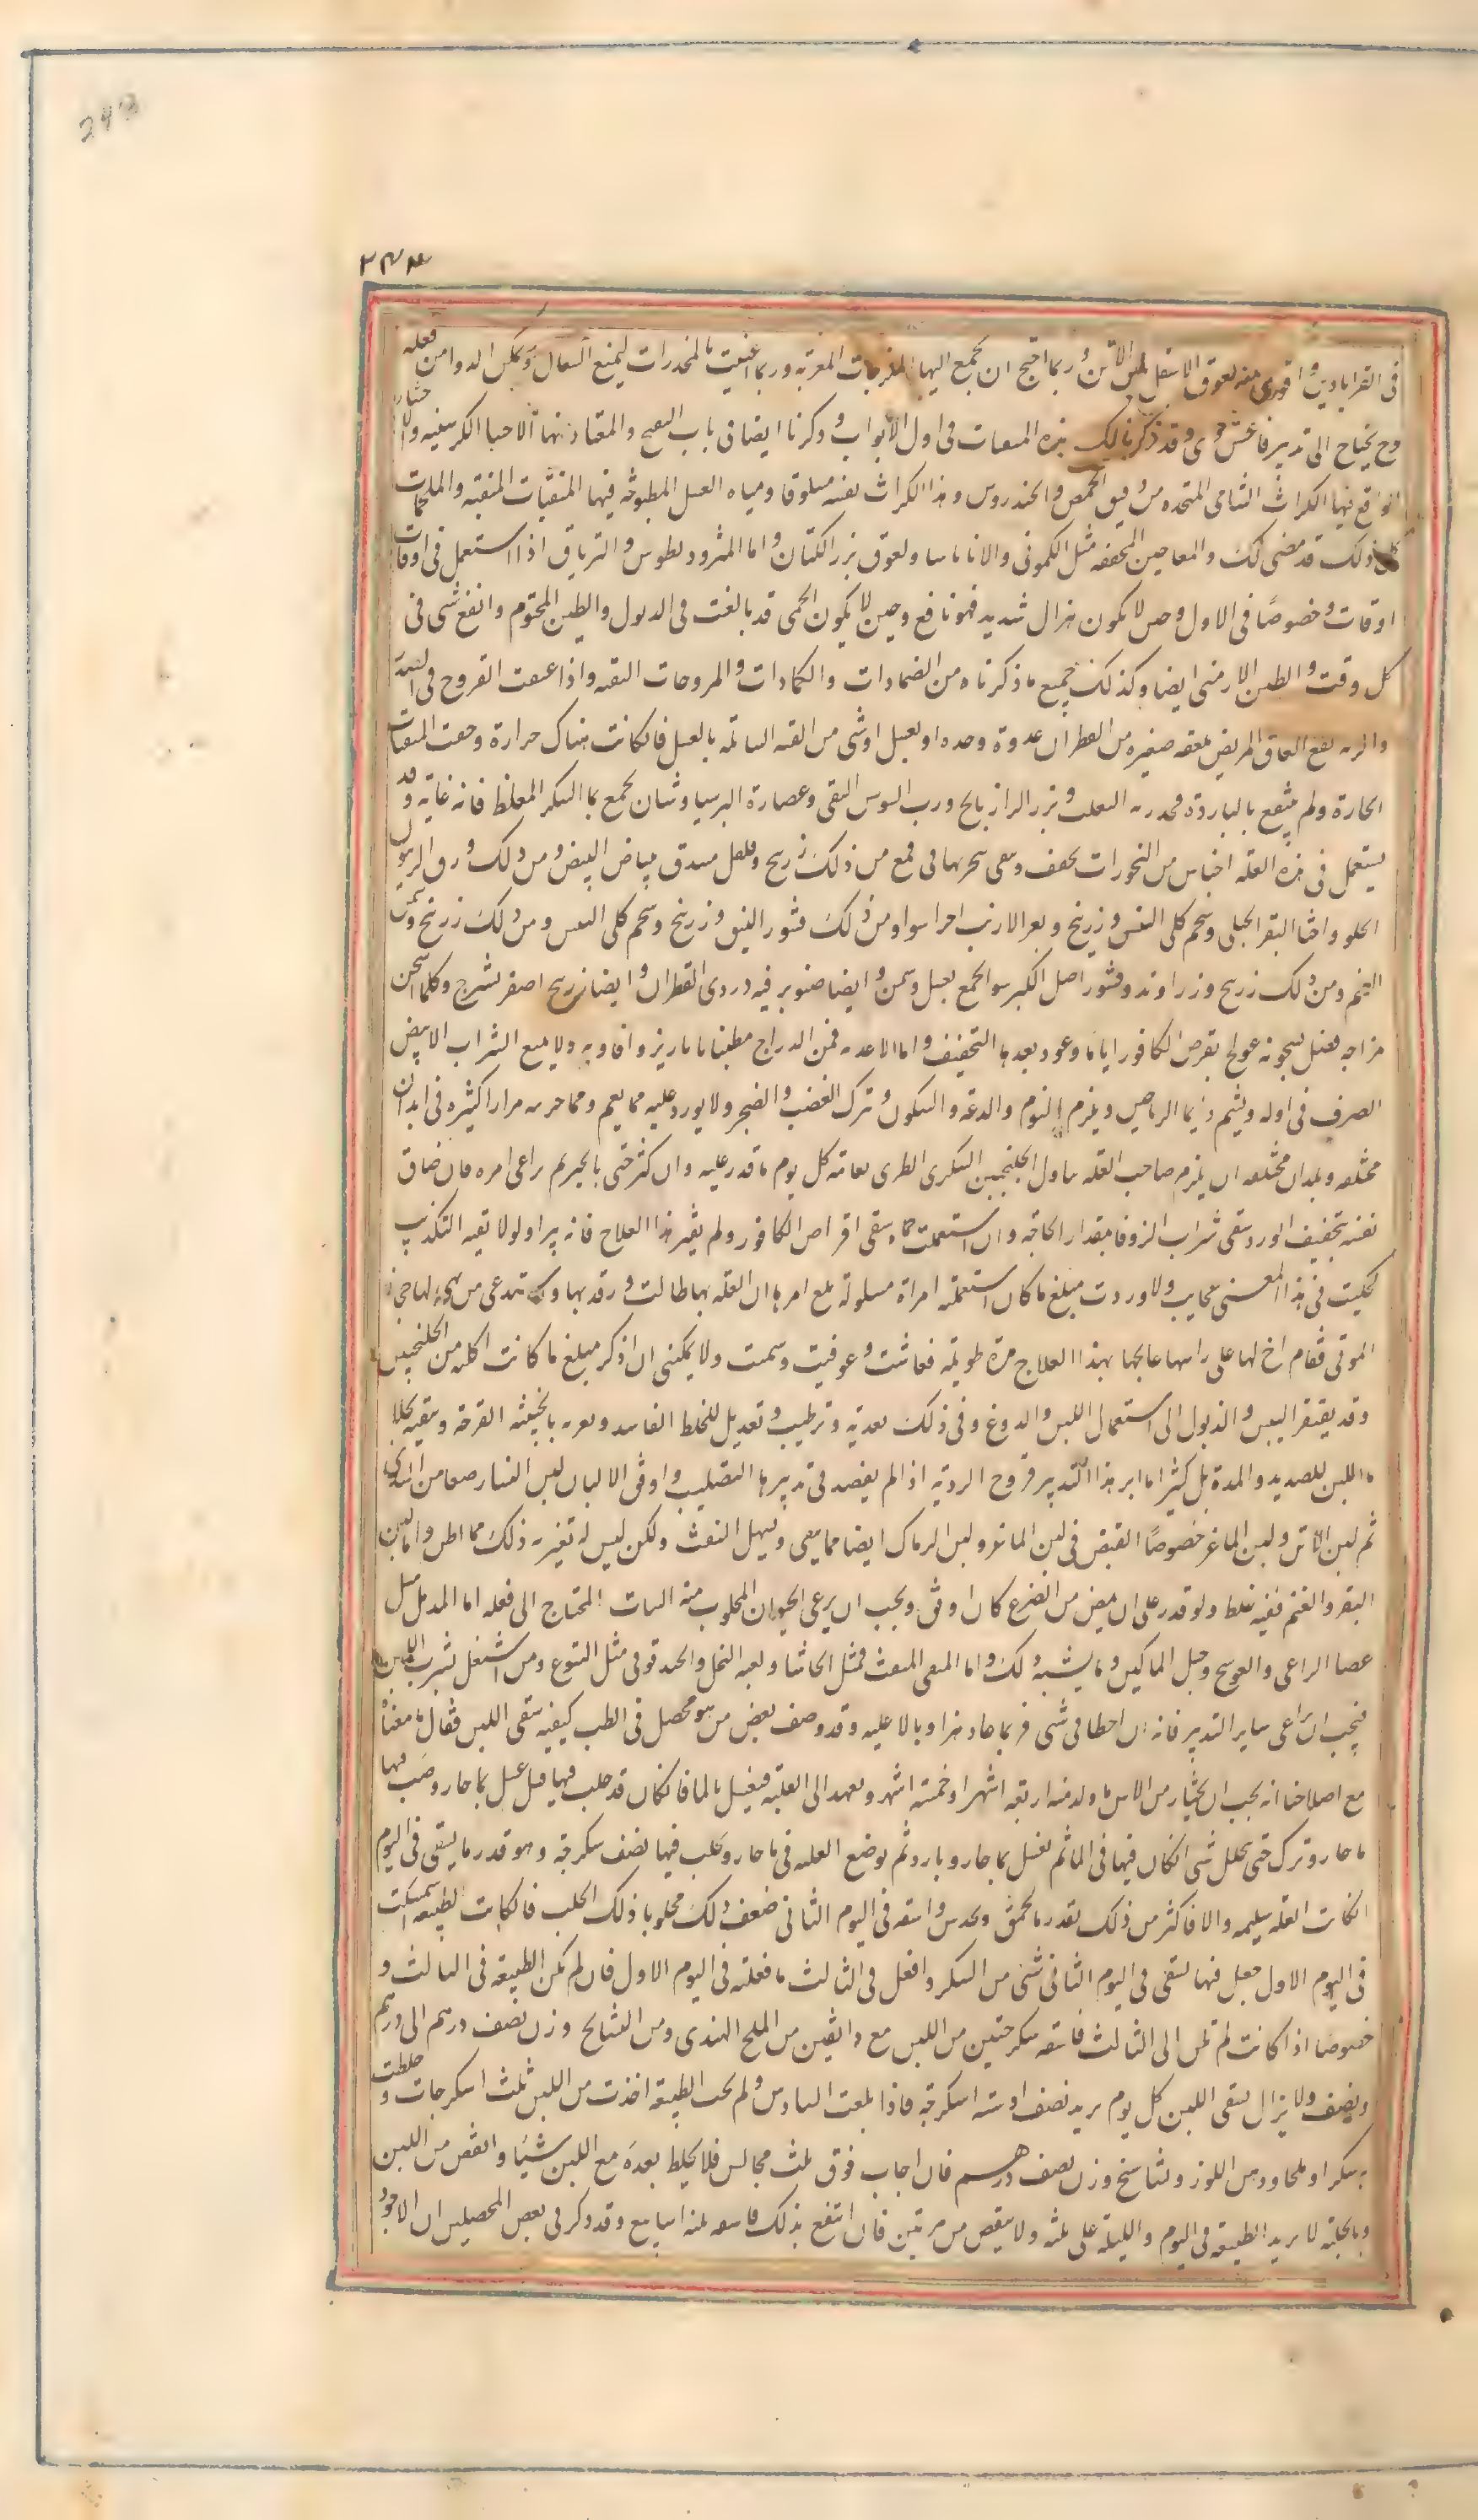 243
في القرابادين واقوى منه لعوق الاسقيل بلبن الاتن وربما احتيج ان يجمع اليها الملزجات المغرية وربما اعينت بالمخدرات ليمنع السعال وتمكن الدوا من فعله
وح يحتاج الى تدبير ناعش قوى وقد ذكرنا لك هذه المنقيات في اول الابواب وذكرنا ايضا في باب القيح والمعتاد منها الاحساء الكرسنية
الواقع فيها الكراث الشامي المتخذة من دقيق الحمص والخندروس وهذا الكراث نفسه مسلوقا ومياه العسل المطبوخة فيها المنقيات المنقية والملحمات
كل ذلك قد مضى لك والمعاجين المجففة مثل الكموني والاثاناسيا ولعوق بزر الكتان واما المثروديطوس والترياق اذا استعمل في اوقات
اوقات وخصوصًا في الاول وحين لا يكون هزال شديد فهو نافع وحين لا يكون الحمى قد بالغت في الذبول والطين المختوم وانفع شي في
كل وقت والطين الارمني ايضا وكذلك جميع ما ذكرناه من الضمادات والكمادات والمروحات النقية واذا عتقت القروح في الصدر
والرية نفع العاق المريض ملعقة صغيرة من القطران غدوة وحده او بعسل او شي من القنة السائلة بالعسل فان كانت هناك حرارة وخفت المنقيات
الحارة ولم ينتفع بالباردة فخذ رية الثعلب وبزر الرازيانج ورب السوس النقي وعصارة البرسياوشان يجمع بماء السكر المغلظ فانه غاية وقد
يستعمل في هذه العلة اجناس من البخورات يجفف وينقى يبخر بها في قمع من ذلك زرنيخ وفلفل يبندق ببياض البيض ومن ذلك ورق الزيتون
الحلو واخثا البقر الجبلي وشحم كلى التيس وزرنيخ وبعر الارنب اجزا سوا ومن ذلك قشور الينق وزرنيخ وشحم كلى التيس ومن ذلك زرنيخ وسمن
الغنم ومن ذلك زرنيخ وزراوند وقشور اصل الكبر سوا يجمع بعسل وسمن وايضا صنوبر فيه دردى القطران وايضا زرنيخ اصفر بشيرج وكلما سخن
مزاجه فضل سخونة عولج بقرص الكافور اياما وعود بعدها التجفيف واما الاغذية فمن الدراج مطيبا بابازير وافاويه ولا يمنع الشراب الابيض
الصرف في اوله ويشم دايما الرياحين ويلزم النوم والدعة والسكون وترك الغضب والضجر ولا يورد عليه مما يغم ومما جربته مرارا كثيرة في ابدان
مختلفة وبلدان مختلفة ان يلزم صاحب العلة تناول الجلنجبين السكري الطري لعامه كل يوم ما قدر عليه وان كثر حتى بالخبز ثم راعى امره فان ضاق
نفسه بتجفيف الورد سقى شراب الزوفا بمقدار الحاجة وان اشتعلت حماه سقى اقراص الكافور ولم يغير هذا العلاج فانه يبرا ولولا تقية التكذيب
لحكيت في هذا المعنى عجايب ولاوردت مبلغ ما كان استعملته امراة مسلولة بلغ امرها ان العلة بها طالت ورقدتها واستدعى من يهيئ لها جهاز
الموتى فقام اخ لها على راسها عالجها بهذا العلاج مدة طويلة فعاشت وعوفيت وسمنت ولا يمكنني ان اذكر مبلغ ما كانت اكلته من الجلنجبين
وقد يفتقر اليبس والذبول الى استعمال اللبن والدوغ وفي ذلك تغذية وترطيب وتعديل للخلط الفاسد وتغرية بالجبنية القرحة وتنقية بجلا
ماء اللبن للصديد والمدة بل كثيرا ما ابرا هذا التدبير قروح الرية اذا لم يقصد في تدبيرها التصليب واوفق الالبان لبن النساء رضعا من الثدي
ثم لبن الاتن ولبن الماعز خصوصًا القبض في لبن الماعز ولبن الرماك ايضا مما ينقي ويسهل النفث ولكن ليس له تغرية ذلك مما اظن واما لبن
البقر والغنم ففيه غلظ ولو قدر على ان يمص من الضرع كان اوفق ويجب ان يرعى الحيوان المحلوب منه النبات المحتاج الى فعله اما المدمل مثل
عصا الراعي والعوسج وحبل المساكين وما يشبه ذلك واما المنقي المنفث فمثل الحاشا ولعبة النحل والحندقوقي مثل اليتوع ومن اشتغل بشرب اللبن
فيجب ان يراعى ساير التدبير فانه ان اخطا في شي فربما عاد هذا وبالا عليه وقد وصف بعض من هو محصل في الطب كيفية سقى اللبن فقال ما معناه
مع اصلاحنا انه يجب ان يختار من الاتن ما ولد منذ اربعة اشهر او خمسة اشهر ويعهد الى العلبة فيغسل بالماء فان كان قد حلب فيها قبل غسل بماء حار وصب فيها
ماء حار وترك حتى يتحلل شي ان كان فيها في الماء ثم تغسل بماء حار وبارد ثم توضع العلبة في ماء حار ويحلب فيها نصف سكرجة وهو قدر ما يسقى في اليوم
ان كانت العلة سليمة والا فاكثر من ذلك بقدر ما يخمن ويحدس واسقه في اليوم الثاني ضعف ذلك محلوبا ذلك الحلب فان كانت الطبيعة استمسكت
في اليوم الاول جعل فيها يسقى في اليوم الثاني شي من السكر وافعل في الثالث ما فعلته في اليوم الاول فان لم تلن الطبيعة في الثالث و
خصوصا اذا كانت لم تلن الى الثالث فاسقه سكرجتين من اللبن مع دانقين من الملح الهندي ومن النشاستج وزن نصف درهم الى درهم
ونصف ولا يزال يسقى اللبن كل يوم يزيد نصف اسكرجة فاذا بلغت السادس ولم تجب الطبيعة اخذت من اللبن ثلث اسكرجات وخلطت
به سكرا وملحا ودهن اللوز ونشاستج وزن نصف درهم فان اجاب فوق ثلث مجالس فلا يخلط بعده مع اللبن شيئا وانقص من اللبن
وبالجملة لا يزيد الطبيعة في اليوم والليلة على ثلثة ولا ينقص من مرتين فان انتفع بذلك فاسقه ثلثة اسابيع وقد ذكر في بعض المحصلين ان الاجود